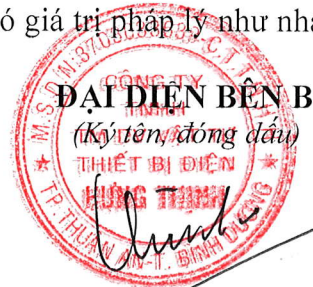 ó giá trị pháp lý như nha
ĐẠI DIỆN BÊN B
(Ký tên, đóng dấu)
M.S.D.N: C.T.T.N.H.H
CÔNG TY
TNHH
THIẾT BỊ ĐIỆN
HƯNG THỊNH
TP. THUẬN AN-T. BÌNH DƯƠNG